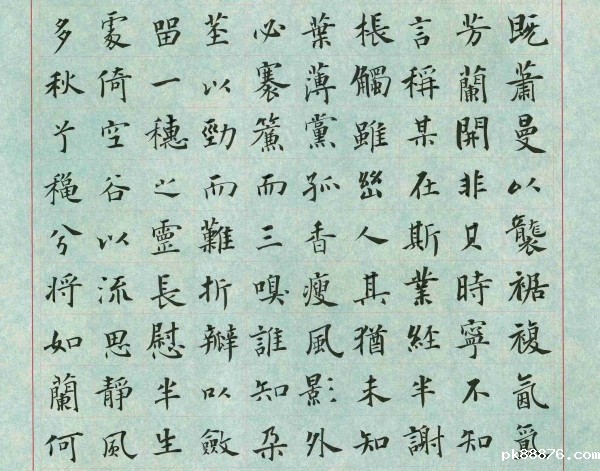 既蕭曼以襲裾複氤氳
芳蘭開非時寧不知
言稱某在斯業經半謝
棖觸雖人其猶未知
葉薄黨孤香瘦風影外
必褰簾而三嗅誰知朵
莖以勁而難折瓣以斂
留一穗之靈長慰半生
處倚空谷以流思靜風
多秋穐兮将如蘭何
pk88876.com